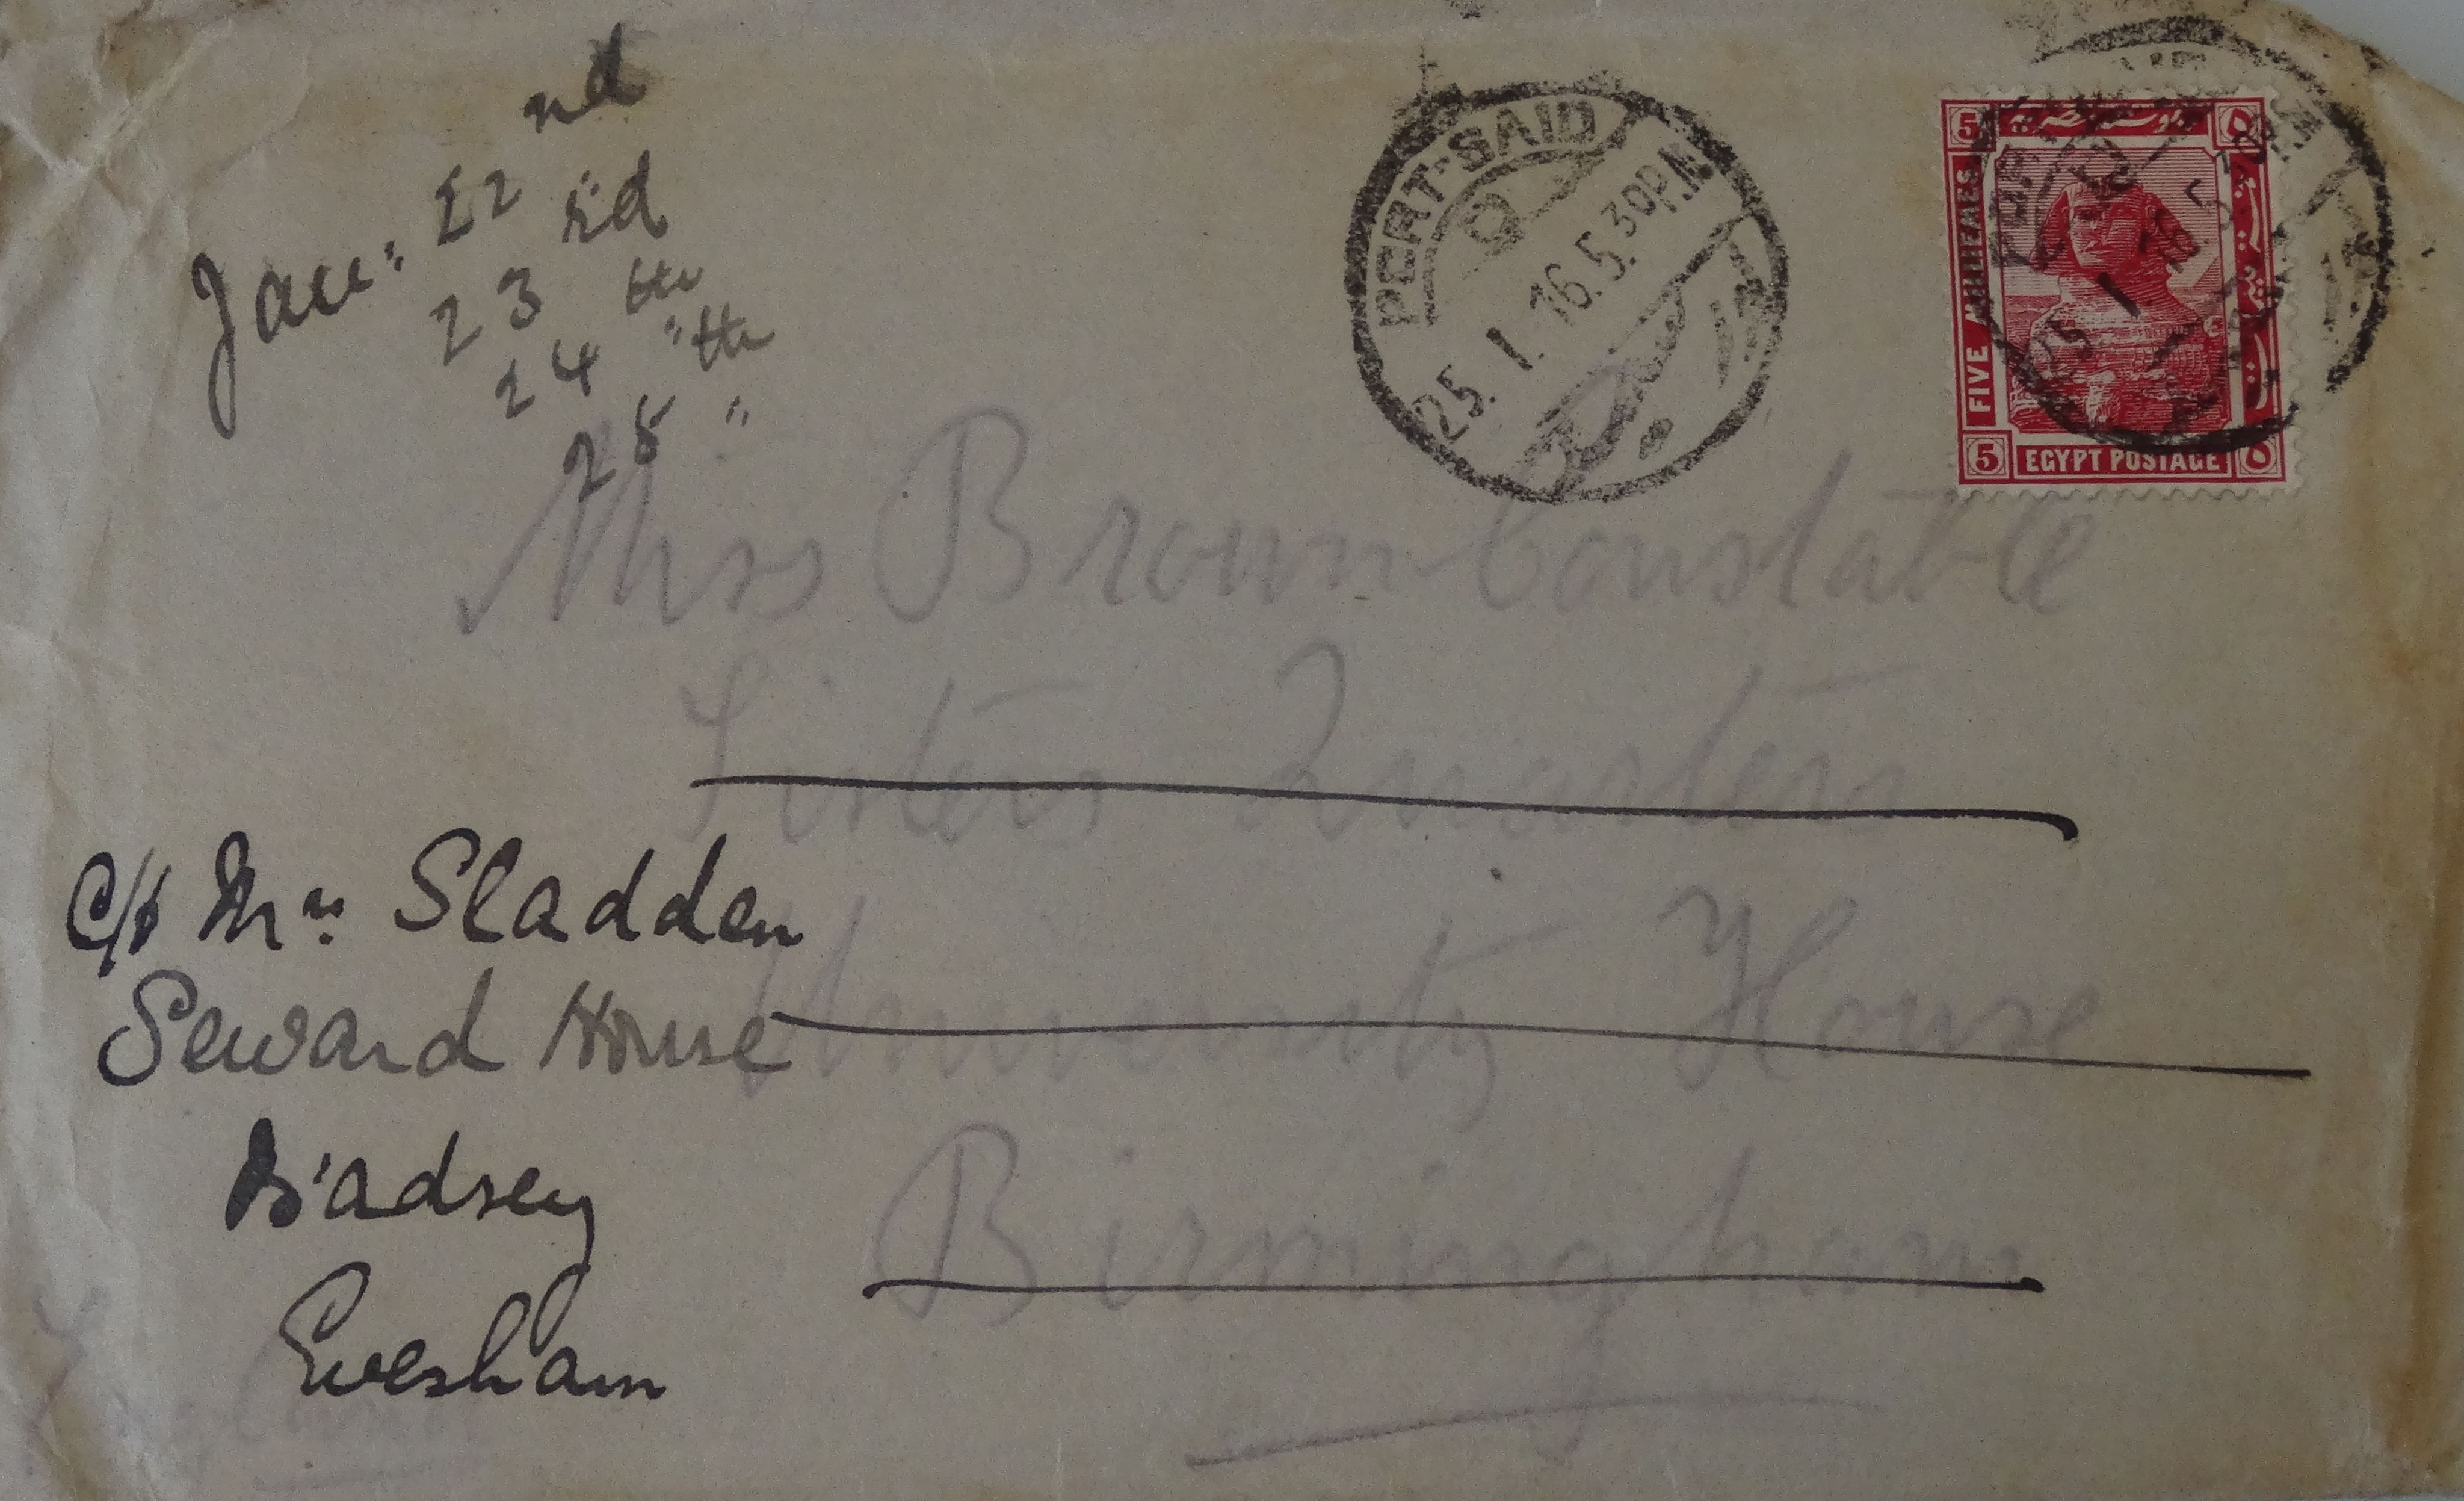 Jan: 22nd
23rd
24th
25th
PORT-SAID
25.1.16.5.30P.M
بوستة مصرية
5
FIVE MILLIEMES
5 EGYPT POSTAGE ٥
Miss Brown Constable
Sisters Quarters
University House
Birmingham
C/o Mrs Sladden
Seward House
Badsey
Evesham
England